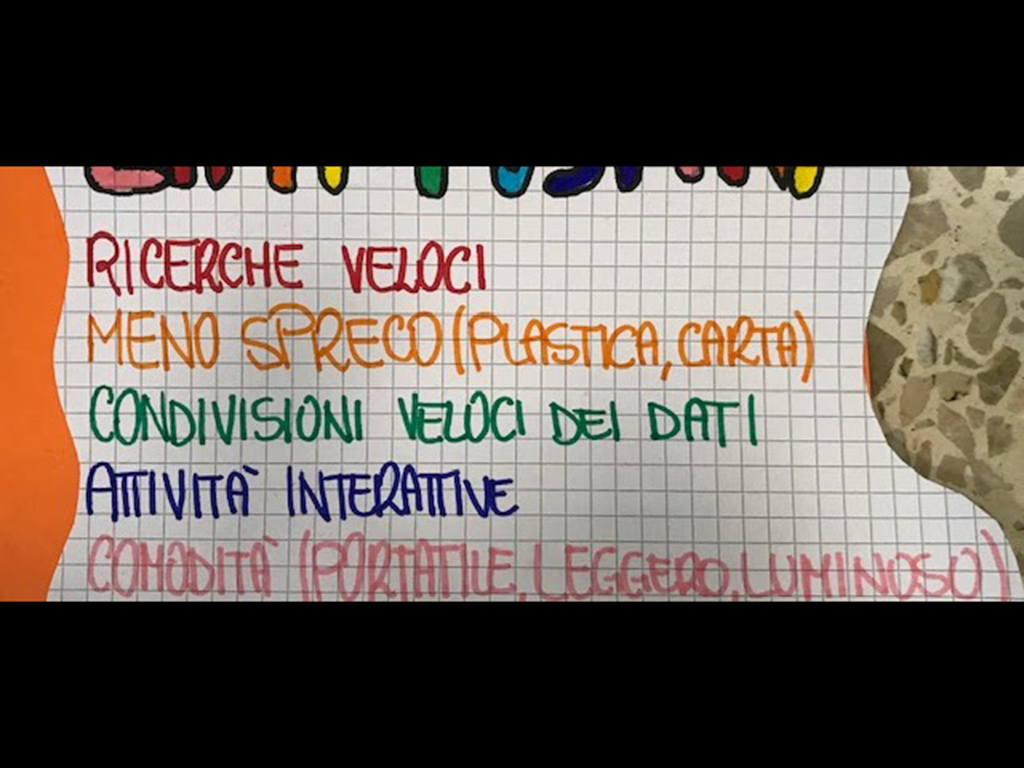 RICERCHE VELOCI
MENO SPRECO (PLASTICA, CARTA)
CONDIVISIONI VELOCI DEI DATI
ATTIVITÀ INTERATTIVE
COMODITÀ (PORTATILE, LEGGERO, LUMINOSO)